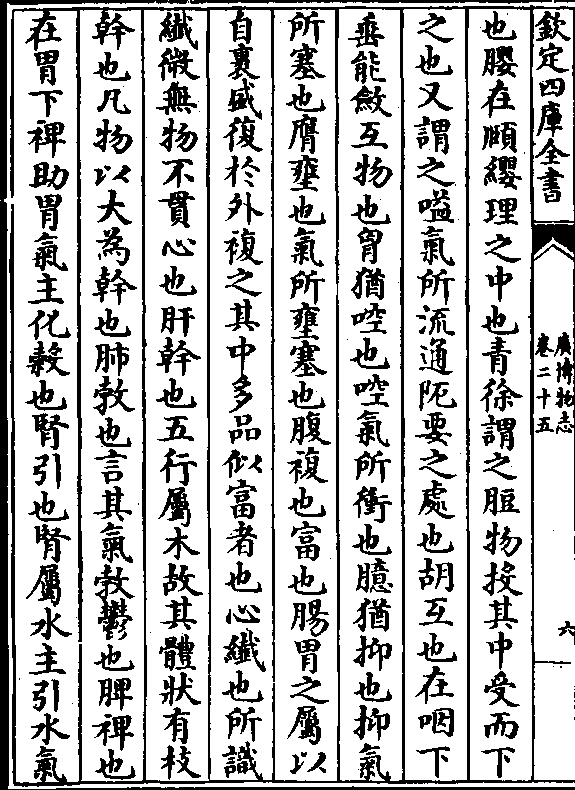 欽定四庫全書
廣博物志
卷二十五
六
也膺在頤纓理之中也青徐謂之脰物投其中受而下
之也又謂之嗌氣所流通阨要之處也胡互也在咽下
垂能斂互物也胷猶啌也啌氣所衝也臆猶抑也抑氣
所塞也膺壅也氣所壅塞也腹複也富也腸胃之屬以
自裹盛復於外複之其中多品似富者也心纖也所識
纖微無物不貫心也肝幹也五行屬木故其體狀有枝
幹也凡物以大為幹也肺敎也言其氣敎鬱也脾裨也
在胃下裨助胃氣主化穀也腎引也腎屬水主引水氣